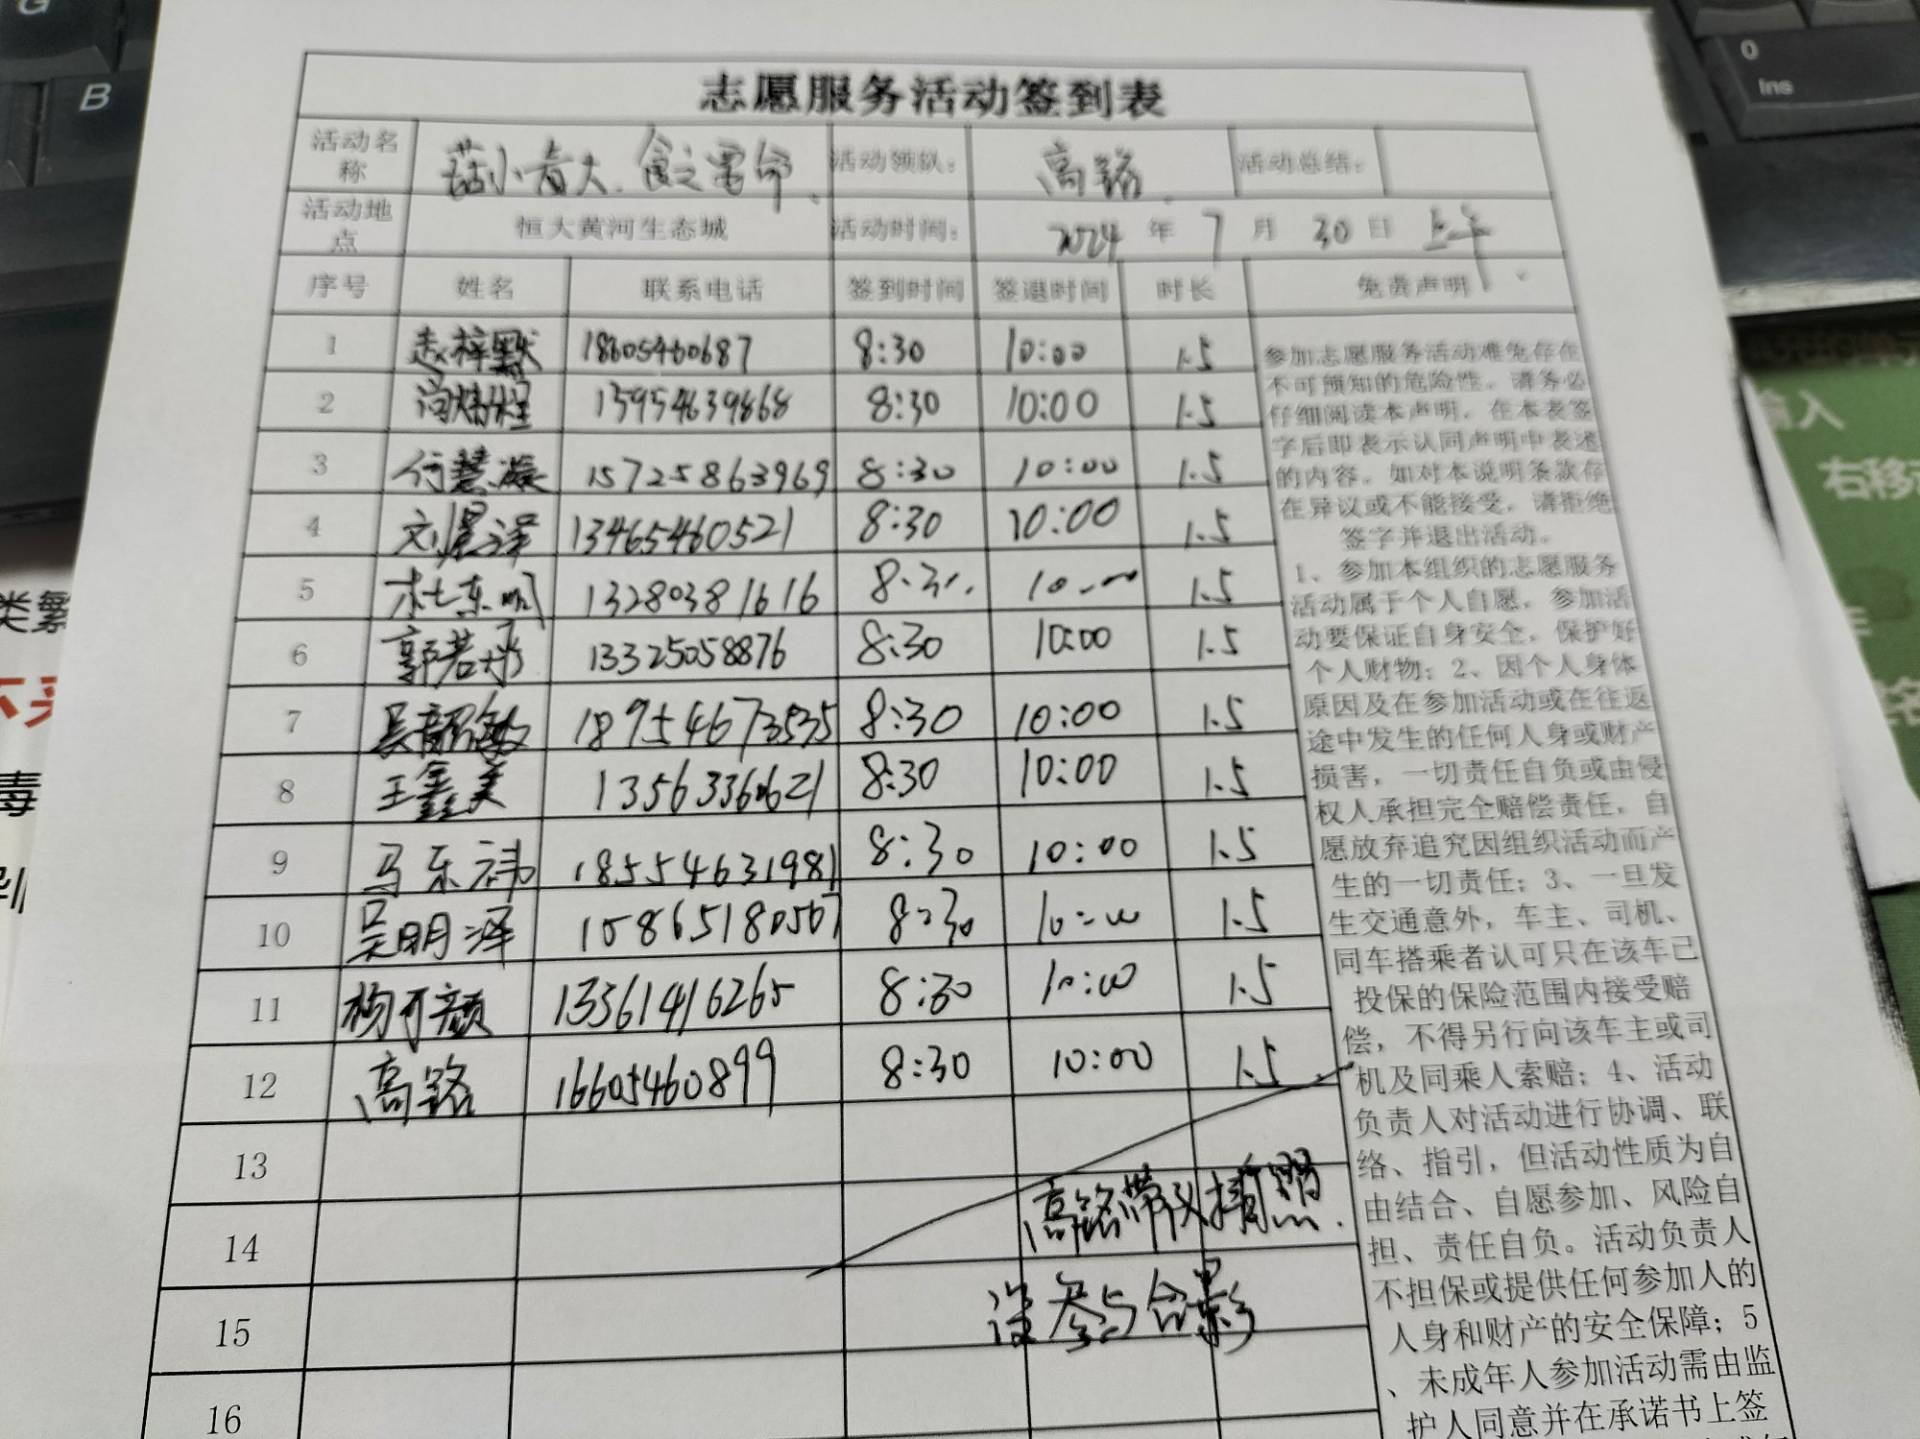 G
B
0
Ins
志愿服务活动签到表
活动名称 菇小者大.食之需命 活动领队： 高铭 活动总结：
活动地点 恒大黄河生态城 活动时间： 2024 年 7 月 30 日 上午
序号 姓名 联系电话 签到时间 签退时间 时长 免责声明
1 赵梓默 18605460687 8:30 10:00 1.5
2 13954639868 8:30 10:00 1.5
3 付慧凝 15725863969 8:30 10:00 1.5
4 刘星泽 13465460521 8:30 10:00 1.5
5 杜东明 13280381616 8:30 10:00 1.5
6 郭若彤 13325058876 8:30 10:00 1.5
7 吴韶敏 18954673535 8:30 10:00 1.5
8 王鑫美 13563360621 8:30 10:00 1.5
9 马东祎 18554631981 8:30 10:00 1.5
10 吴明泽 15865180567 8:30 10:00 1.5
11 构可颜 13361416265 8:30 10:00 1.5
12 高铭 16605460899 8:30 10:00 1.5
13
14
15
16
高铭带队拍照.
没参与合影
参加志愿服务活动难免存在
不可预知的危险性，请务必
仔细阅读本声明，在本表签
字后即表示认同声明中表述
的内容。如对本说明条款存
在异议或不能接受，请拒绝
签字并退出活动。
1、参加本组织的志愿服务
活动属于个人自愿，参加活
动要保证自身安全，保护好
个人财物；2、因个人身体
原因及在参加活动或在往返
途中发生的任何人身或财产
损害，一切责任自负或由侵
权人承担完全赔偿责任，自
愿放弃追究因组织活动而产
生的一切责任；3、一旦发
生交通意外，车主、司机、
同车搭乘者认可只在该车已
投保的保险范围内接受赔
偿，不得另行向该车主或司
机及同乘人索赔；4、活动
负责人对活动进行协调、联
络、指引，但活动性质为自
由结合、自愿参加、风险自
担、责任自负。活动负责人
不担保或提供任何参加人的
人身和财产的安全保障；5
、未成年人参加活动需由监
护人同意并在承诺书上签
类繁
毒
别
输入
右移